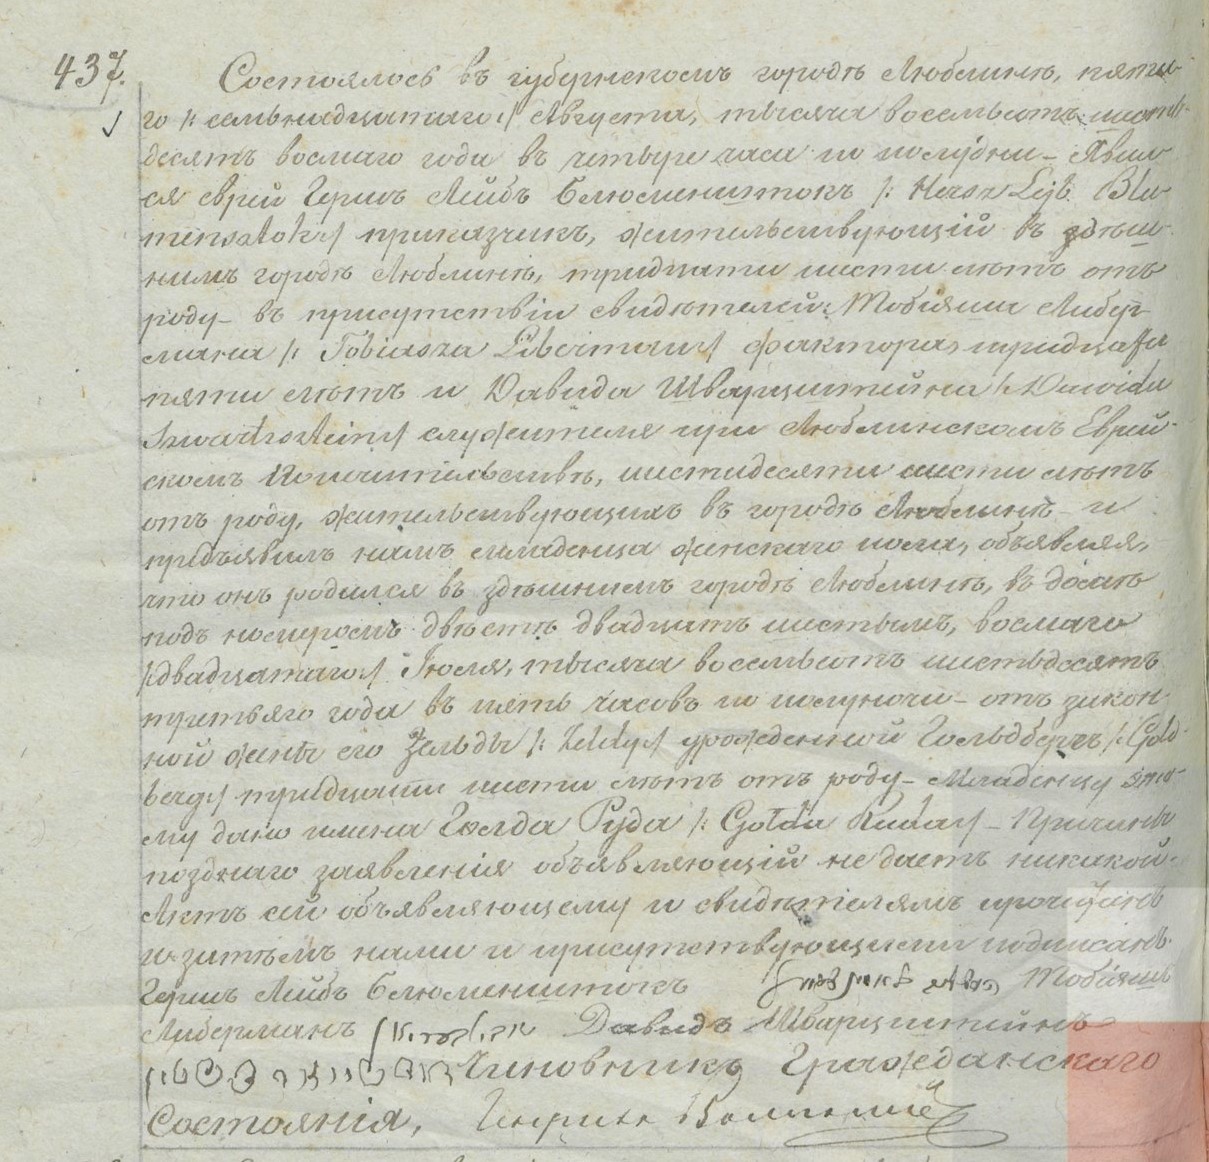 437.
Состоялось въ губернскомъ городѣ Люблинѣ, пята-
го /: семьнадцатаго :/ Августа, тысяча восемьсотъ шесть-
десятъ восмаго года въ четыре часа по полудни – Явил-
ся еврей Гершъ Лейбъ Блюменштокъ /: Hersz Lejb Blu-
mensztok :/ приказчикъ, жительствующій въ здѣш-
нимъ городѣ Люблинѣ, тридцати шести лѣтъ отъ
роду – въ присутствіи свидѣтелей: Тобіяша Либер-
мана /: Tobiasza Liberman :/ фактора, тридцати
пяти лѣтъ и Давида Шварцштейна /: Dawida
Szwartzsztein :/ служителя при Люблинскомъ Еврей-
скомъ Попечительствѣ, шестидесяти шести лѣтъ
отъ роду, жительствующихъ въ городѣ Люблинѣ – и
предъявилъ намъ младенца женскаго пола, объявляя,
что онъ родился въ здѣшнемъ городѣ Люблинѣ, въ домѣ
подъ номеромъ двѣстѣ двадцать шестымъ, восмаго
/: двадцатаго :/ Іюля, тысяча восемьсотъ шестьдесятъ
третьяго года въ пять часовъ по полуночи – отъ закон-
ной жены его Зельды /: Zeldy :/ урожденной Гольдбергъ /: Gold-
berg :/ тридцати шести лѣтъ отъ роду – Младенцу это-
му дано имена Голда Руда /: Golda Ruda :/ – Причины
поздняго заявленія объявляющій не даетъ никакой.
Актъ сей объявляющему и свидѣтелямъ прочитанъ
и затѣмъ нами и присутствующими подписанъ.
Гершъ Лейбъ Блюменштокъ Тобіяшъ
Либерманъ Давидъ Шварцштейнъ
Чиновникъ Гражданскаго
Состоянія,